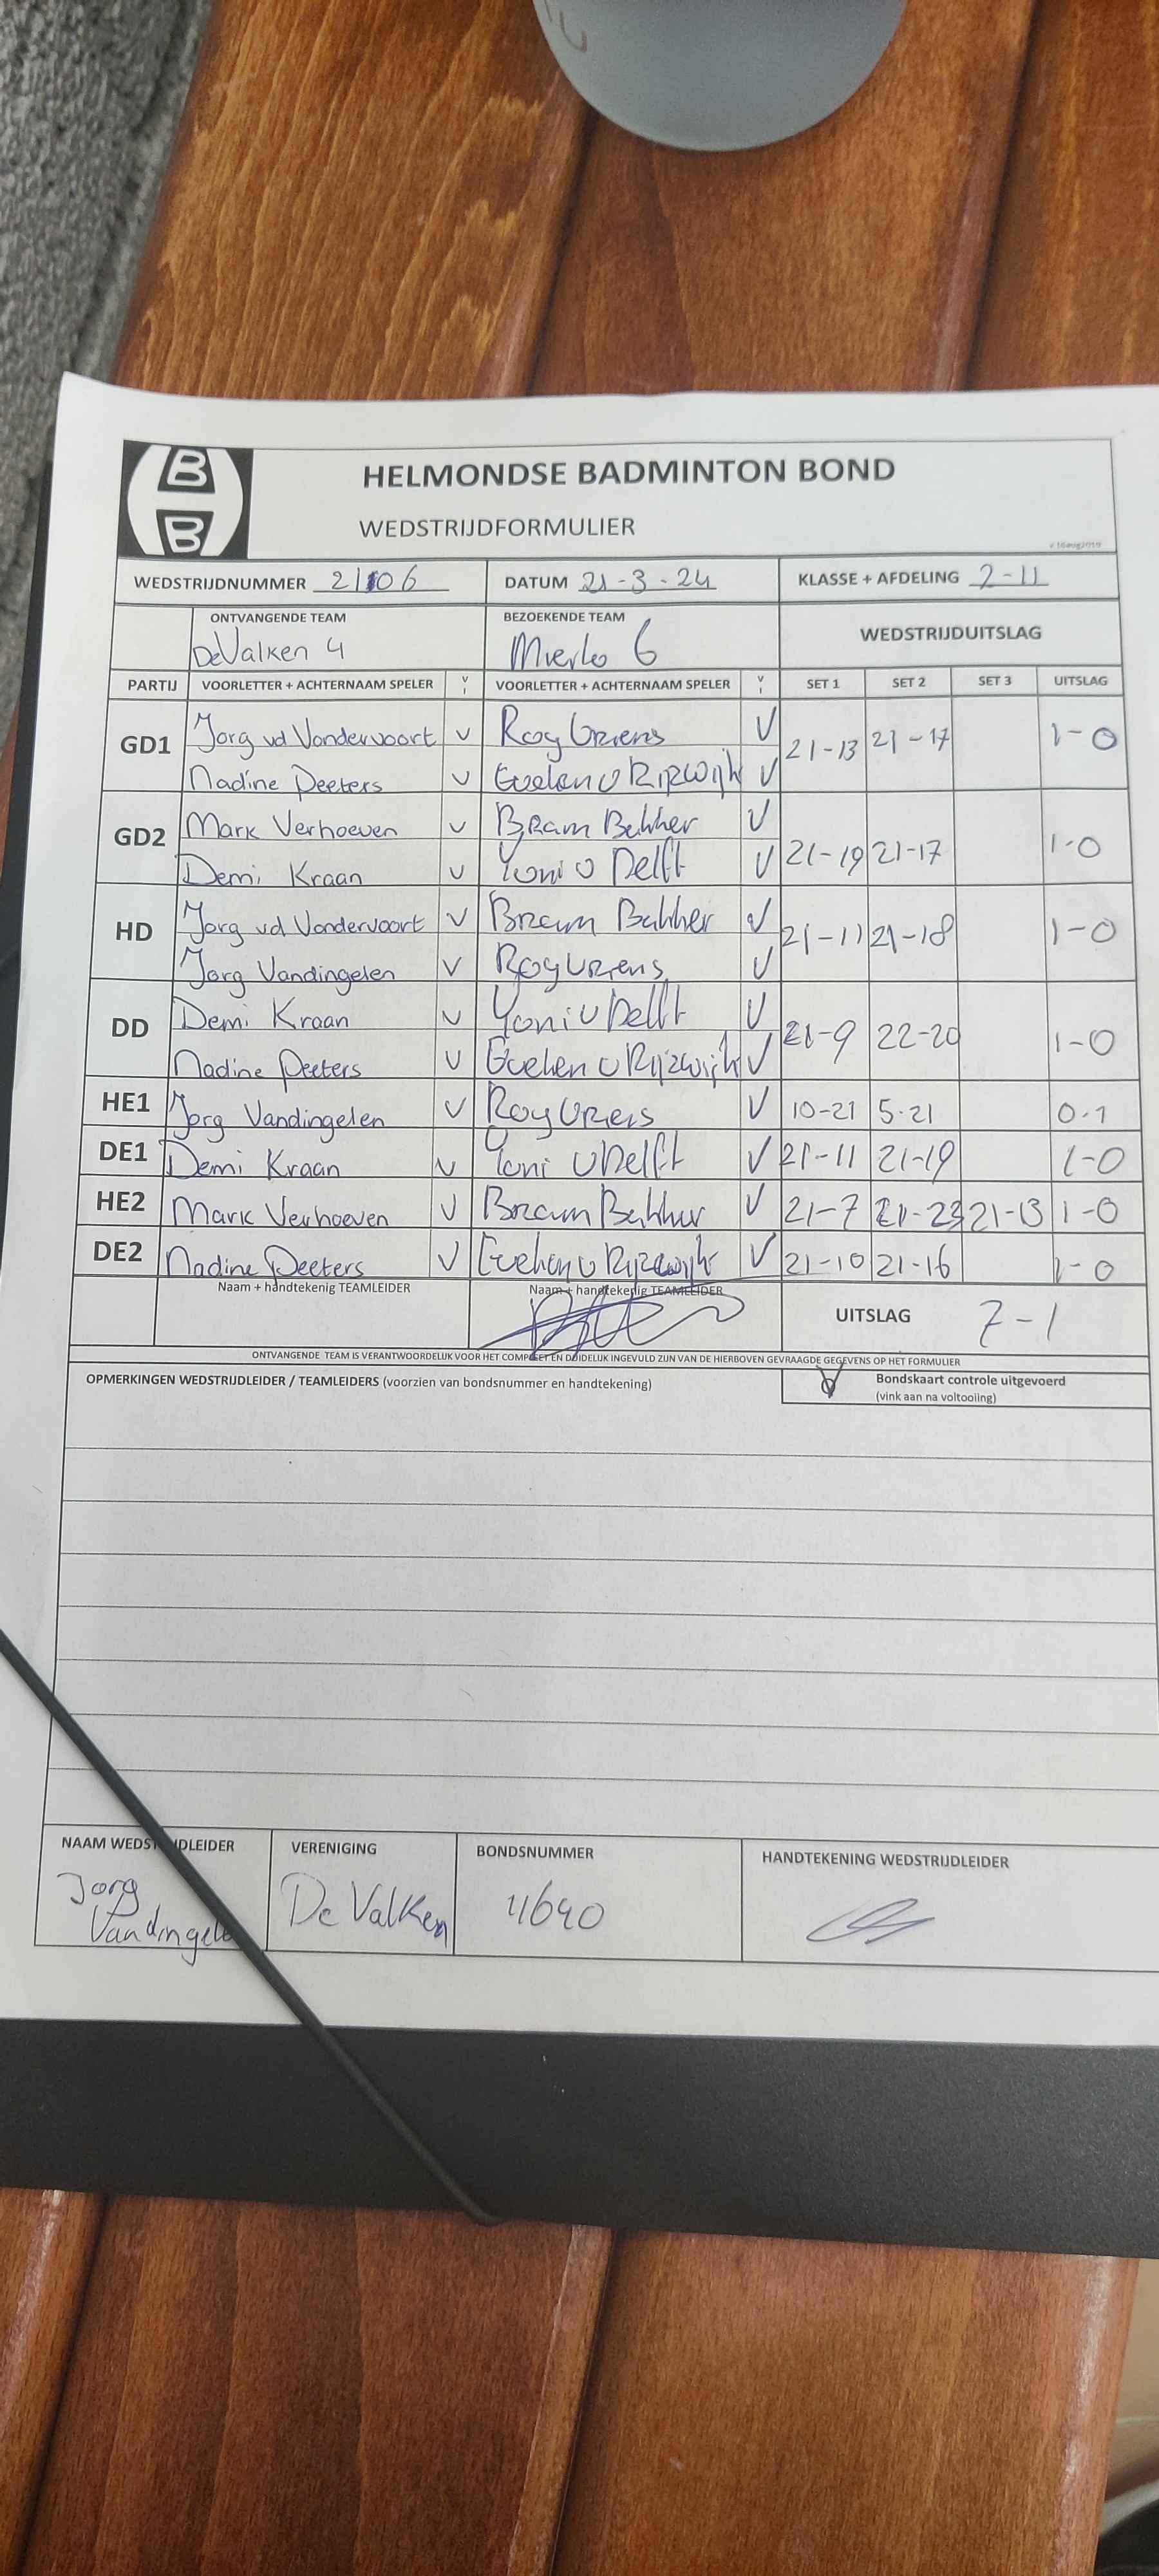 B
B
HELMONDSE BADMINTON BOND
WEDSTRIJDFORMULIER
v 16aug2019
WEDSTRIJDNUMMER 2106 DATUM 21-3-24 KLASSE + AFDELING 2-11
ONTVANGENDE TEAM BEZOEKENDE TEAM WEDSTRIJDUITSLAG
De Valken 4 Mierlo 6
PARTIJ VOORLETTER + ACHTERNAAM SPELER V VOORLETTER + ACHTERNAAM SPELER V SET 1 SET 2 SET 3 UITSLAG
GD1 Jorg vd Vondervoort v Roy Vriens V 21-13 21-17 1-0
Nadine Peeters v Evelien v Rijzwijk V
GD2 Mark Verhoeven v Bram Bakker V 21-19 21-17 1-0
Demi Kraan v Yoni v Delft V
HD Jorg vd Vondervoort V Bram Bakker V 21-11 21-18 1-0
Jorg Vandingelen V Roy Vriens V
DD Demi Kraan V Yoni v Delft V 21-9 22-20 1-0
Nadine Peeters V Evelien v Rijzwijk V
HE1 Jorg Vandingelen V Roy Vriens V 10-21 5-21 0-1
DE1 Demi Kraan V Yoni v Delft V 21-11 21-19 1-0
HE2 Mark Verhoeven V Bram Bakker V 21-7 21-23 21-13 1-0
DE2 Nadine Peeters V Evelien v Rijzwijk V 21-10 21-16 1-0
Naam + handtekenig TEAMLEIDER Naam + handtekenig TEAMLEIDER UITSLAG 7-1
ONTVANGENDE TEAM IS VERANTWOORDELIJK VOOR HET COMPLEET EN DUIDELIJK INGEVULD ZIJN VAN DE HIERBOVEN GEVRAAGDE GEGEVENS OP HET FORMULIER
OPMERKINGEN WEDSTRIJDLEIDER / TEAMLEIDERS (voorzien van bondsnummer en handtekening) V Bondskaart controle uitgevoerd
(vink aan na voltooiing)
NAAM WEDSTRIJDLEIDER VERENIGING BONDSNUMMER HANDTEKENING WEDSTRIJDLEIDER
Jorg De Valken 11690
Vandingelen